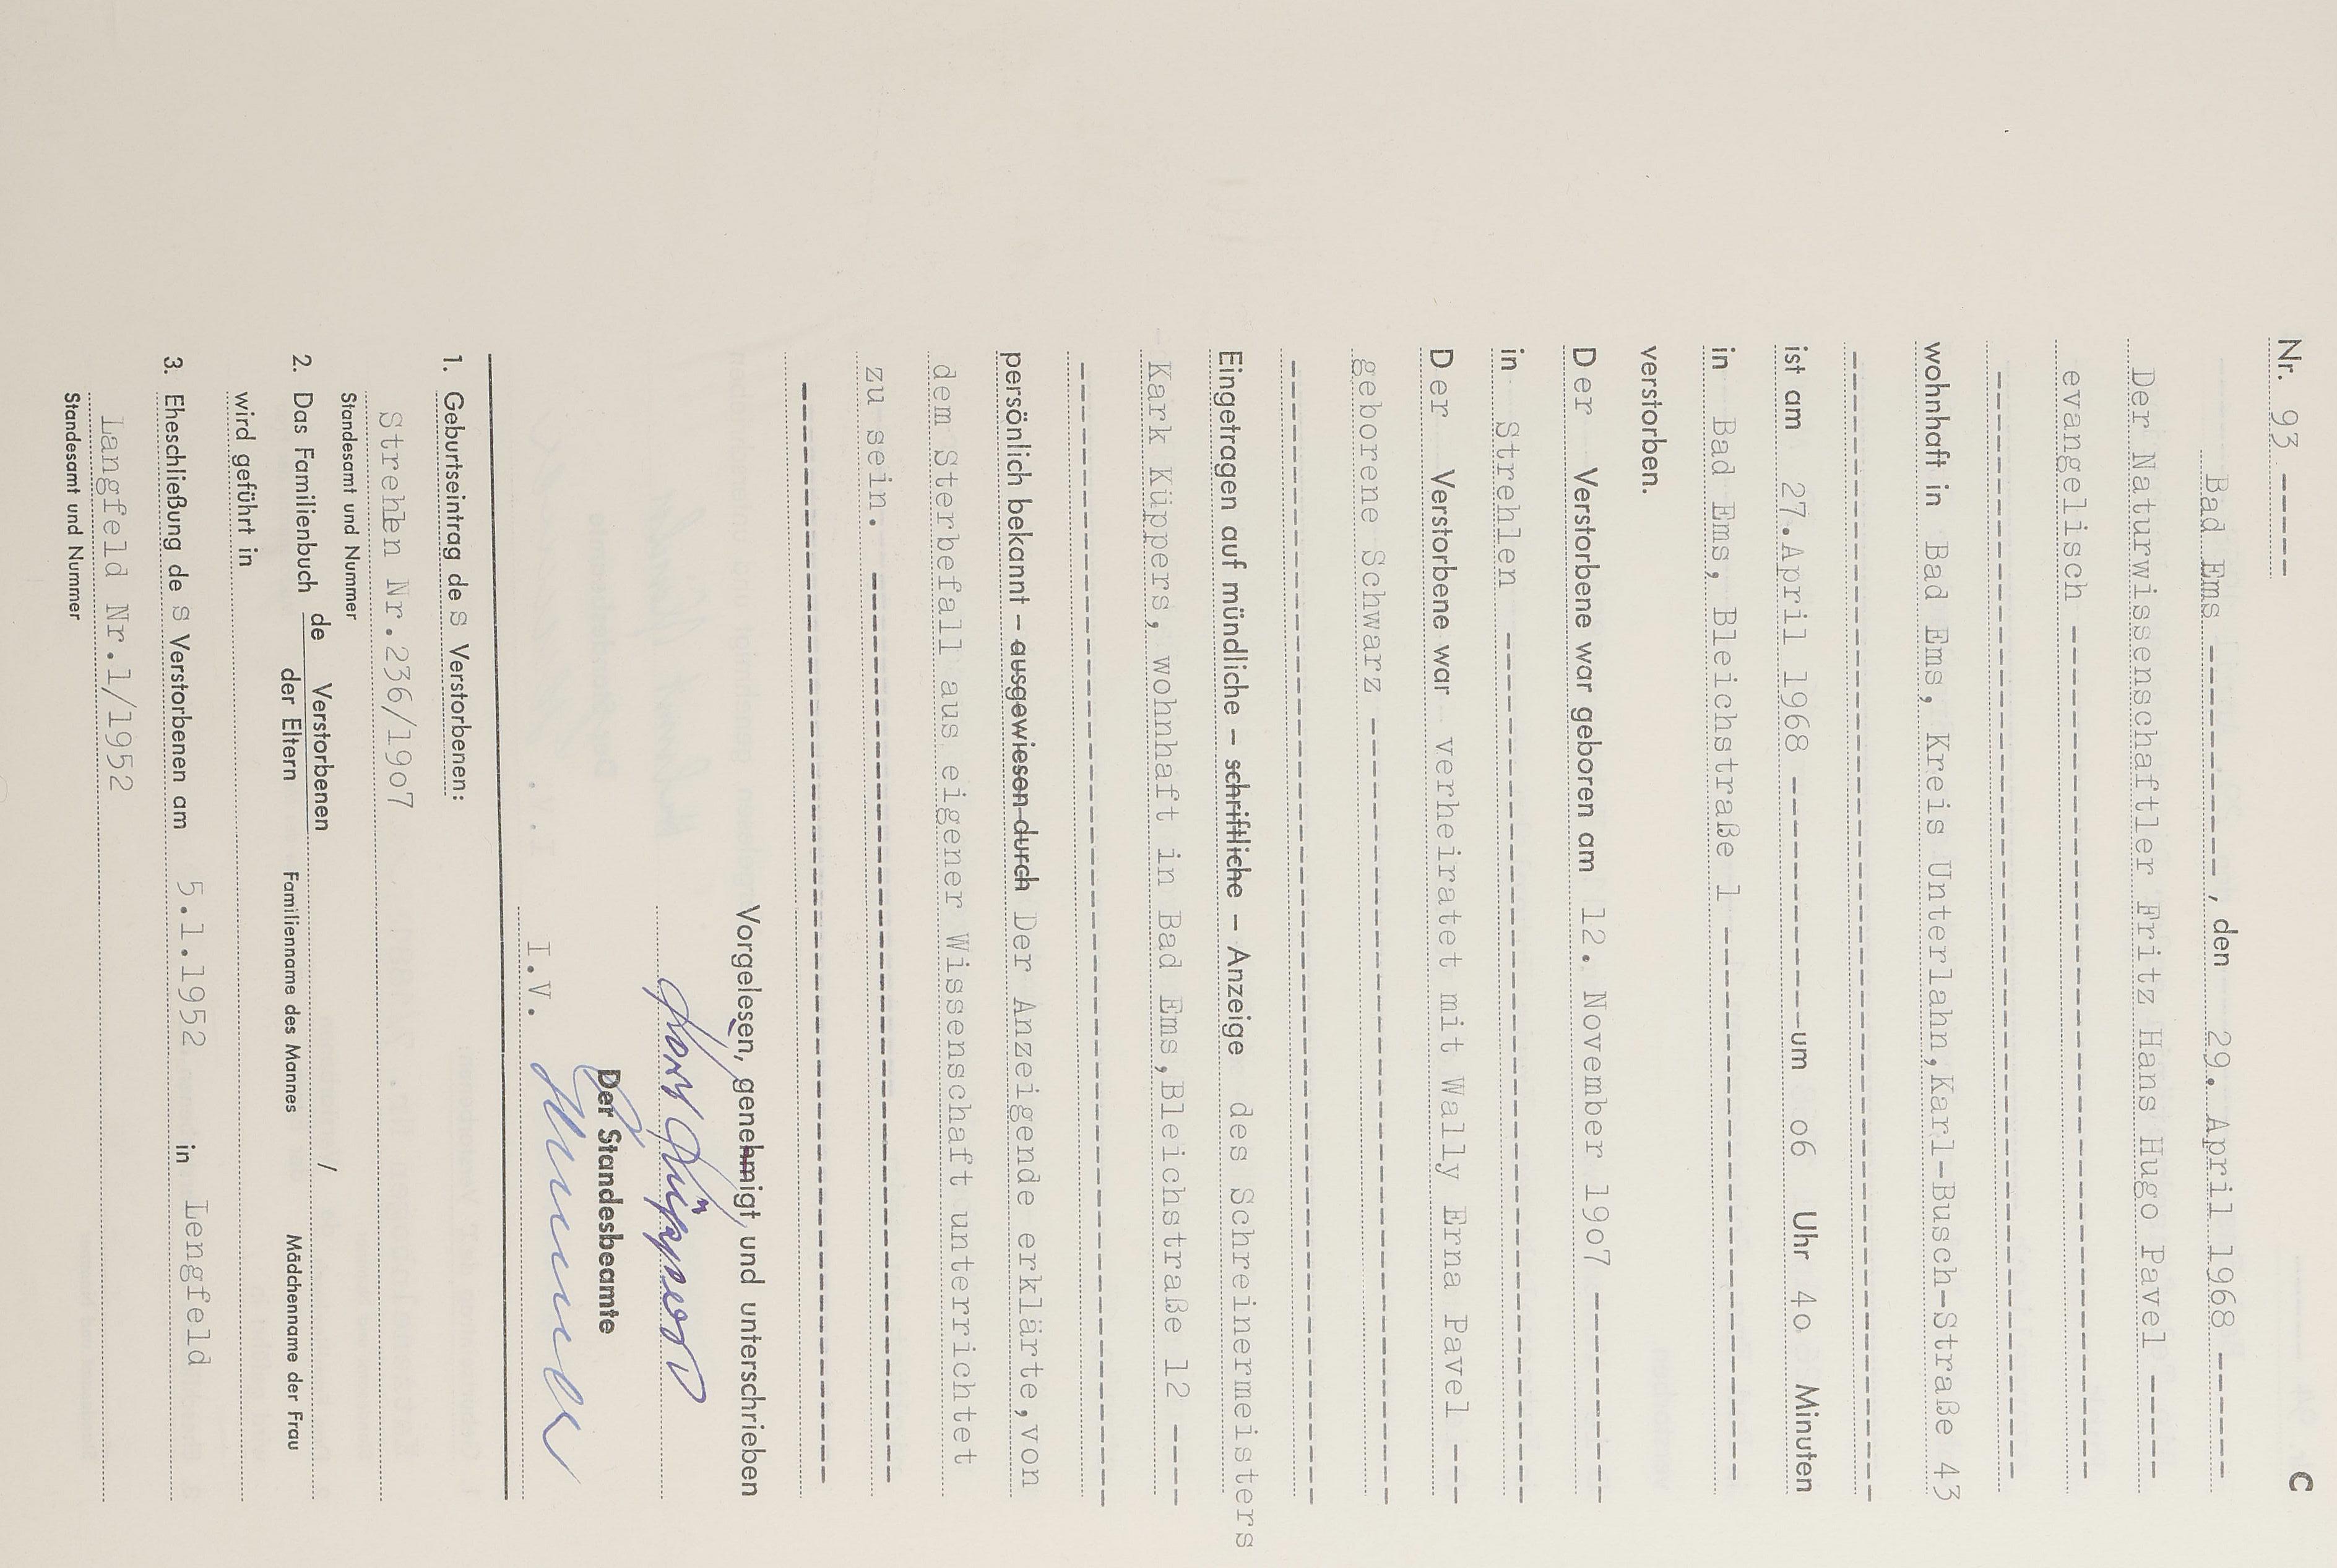 C
Nr. 93 -----
Bad Ems -----------, den 29. April 1968 ------
Der Naturwissenschaftler Fritz Hans Hugo Pavel -----
evangelisch ----------------------------------------
----------------------------------------------------
wohnhaft in Bad Ems, Kreis Unterlahn,Karl-Busch-Straße 43
----------------------------------------------------
ist am 27.April 1968 ------------um o6 Uhr 4o Minuten
in Bad Ems, Bleichstraße 1 --------------------------
verstorben.
D er Verstorbene war geboren am 12. November 19o7 ---------
in Strehlen ----------------------------------------
D er Verstorbene war verheiratet mit Wally Erna Pavel ---
geborene Schwarz -----------------------------------
----------------------------------------------------
Eingetragen auf mündliche – schriftliche – Anzeige des Schreinermeisters
Kark Küppers, wohnhaft in Bad Ems,Bleichstraße 12 ----
----------------------------------------------------
persönlich bekannt – ausgewiesen durch Der Anzeigende erklärte,von
dem Sterbefall aus eigener Wissenschaft unterrichtet
zu sein. -------------------------------------------
----------------------------------------------------
Vorgelesen, genehmigt und unterschrieben
Karl Küppers
Der Standesbeamte
I.V.
1. Geburtseintrag de s Verstorbenen:
Strehlen Nr.236/19o7
Standesamt und Nummer
2. Das Familienbuch de Verstorbenen / der Eltern
Familienname des Mannes Mädchenname der Frau
wird geführt in
3. Eheschließung de s Verstorbenen am 5.1.1952 in Lengfeld
Langfeld Nr.1/1952
Standesamt und Nummer